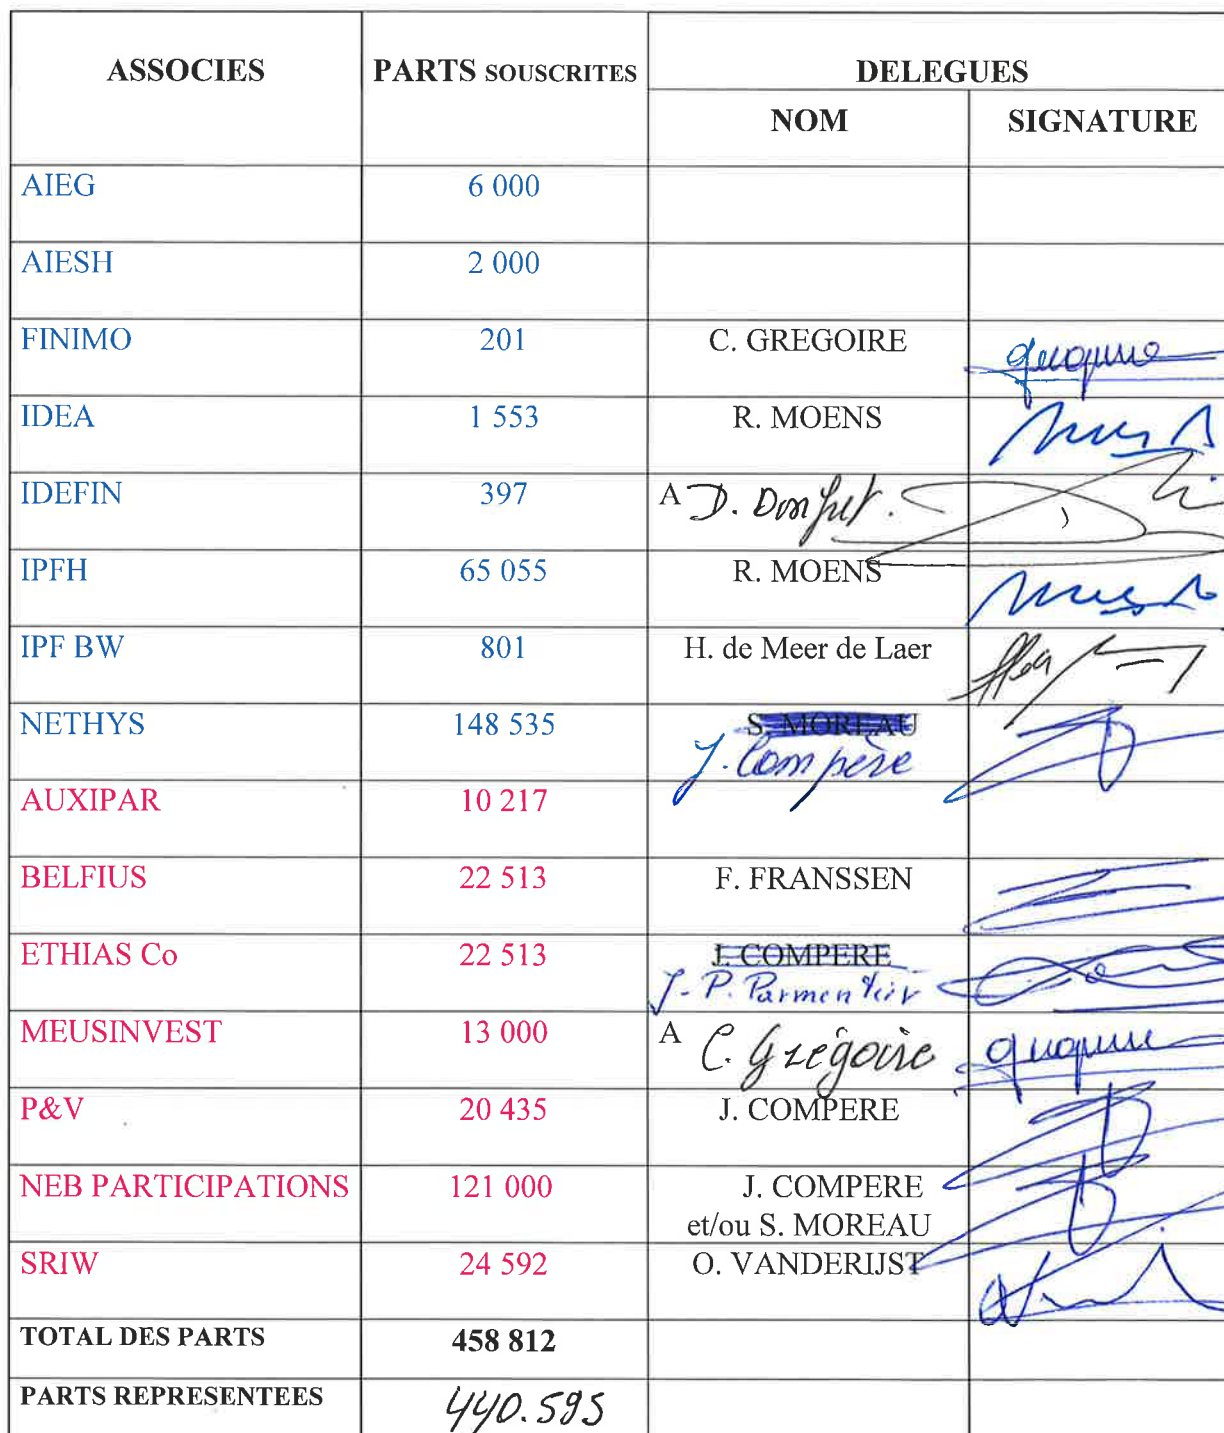 ASSOCIES PARTS SOUSCRITES DELEGUES
NOM SIGNATURE
AIEG 6 000
AIESH 2 000
FINIMO 201 C. GREGOIRE
IDEA 1 553 R. MOENS
IDEFIN 397 A D.
IPFH 65 055 R. MOENS
IPF BW 801 H. de Meer de Laer
NETHYS 148 535 S. MOREAU
J. Compère
AUXIPAR 10 217
BELFIUS 22 513 F. FRANSSEN
ETHIAS Co 22 513 J. COMPERE
J-P. Parmentier
MEUSINVEST 13 000 A C. Grégoire
P&V 20 435 J. COMPERE
NEB PARTICIPATIONS 121 000 J. COMPERE
et/ou S. MOREAU
SRIW 24 592 O. VANDERIJST
TOTAL DES PARTS 458 812
PARTS REPRESENTEES 440.595